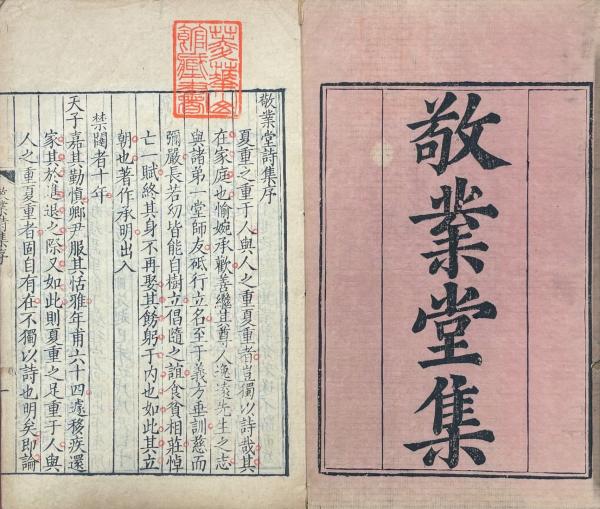 敬業堂集
敬業堂詩集序
夏重之重于人與人之重夏重者豈獨以詩哉其
在家庭也愉婉承歡善繼生尊人逸遠先生之志
與諸第一堂師友砥行立名至于義方垂訓慈而
彌嚴長若幼皆能自樹立倡隨之誼食貧相莊悼
亡一賦終其身不再娶其飭躬于内也如此其立
朝也著作承明出入
禁闥者十年
天子嘉其勤慎鄉尹服其恬雅年甫六十四遽移疾還
家其於進退之際又如此則夏重之足重于人與
人之重夏重者固自有在不獨以詩也明矣即論